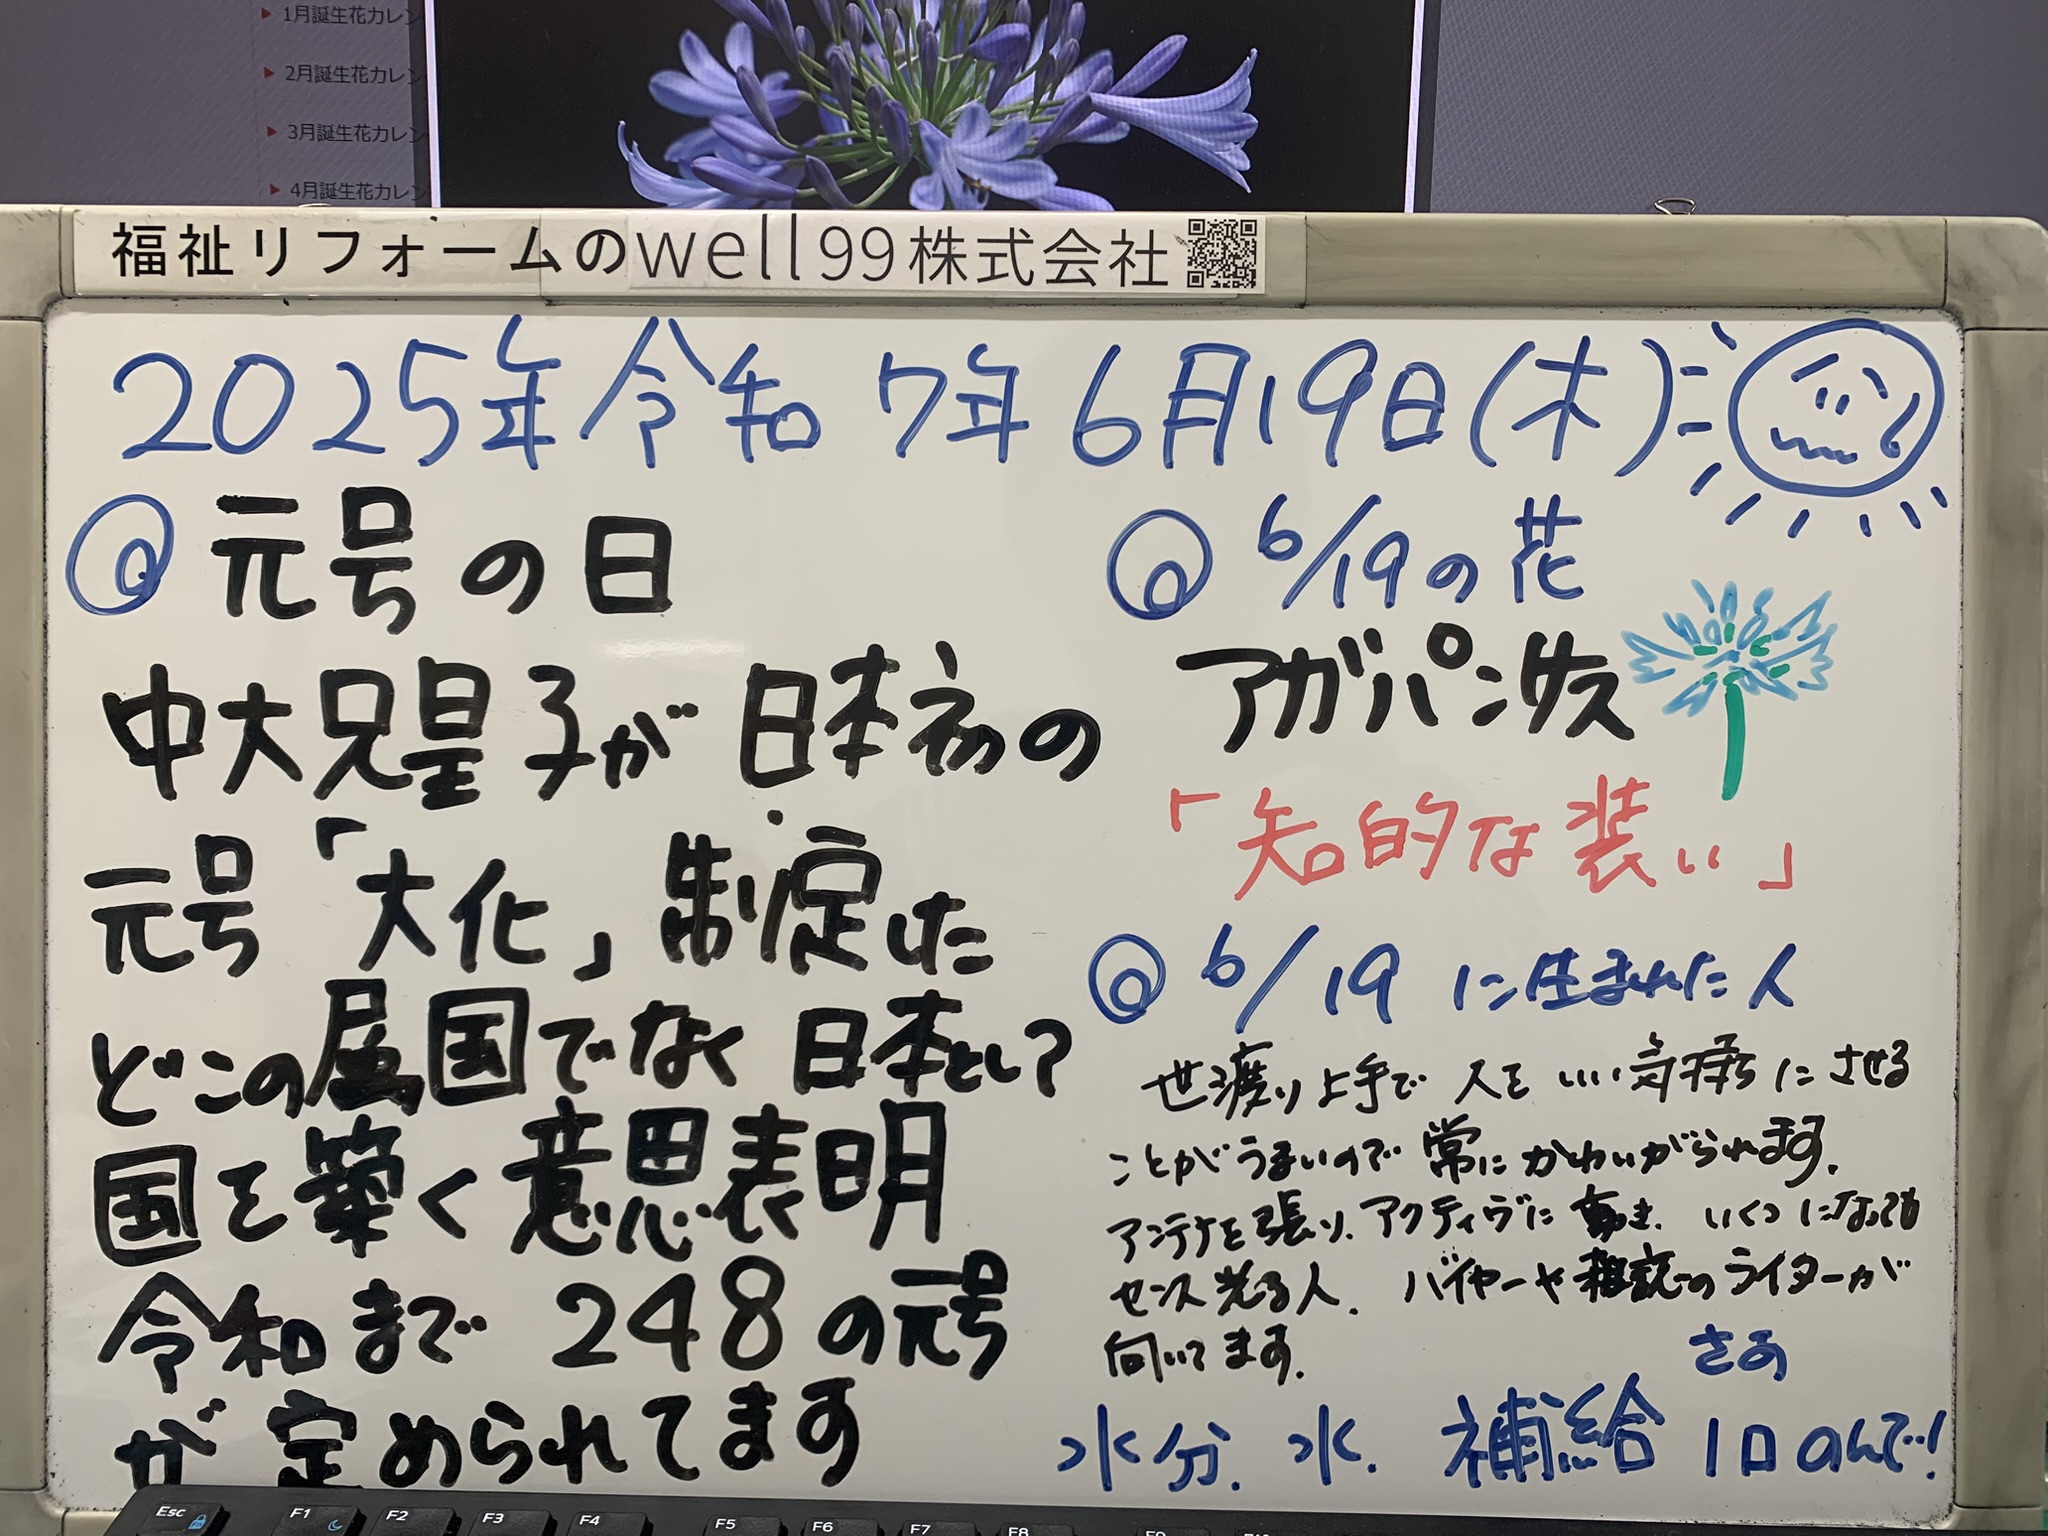 1月誕生花カレン
2月誕生花カレン
3月誕生花カレン
4月誕生花カレン
福祉リフォームのwell99株式会社
2025年令和7年6月19日(木)
元号の日
中大兄皇子が日本初の
元号「大化」制定した
どこの属国でなく日本として
国を築く意思表明
令和まで248の元号
が定められてます
6/19の花
アガパンサス
「知的な装い」
6/19に生まれた人
世渡り上手で人をいい気持ちにさせる
ことがうまいので常にかわいがられます.
アンテナを張り、アクティヴに動き、いくつになっても
センス光る人. バイヤーや雑誌のライターが
向いてます.
さあ
水分.水.補給1口のんで!
Esc
F1
F2
F3
F4
F5
F6
F7
F8
F9
F10